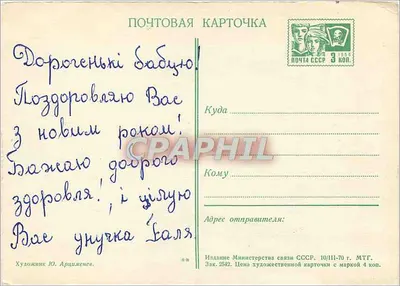 ПОЧТОВАЯ КАРТОЧКА
Дорогенькі бабцю!
Поздоровляю Вас
з новим роком!
Бажаю доброго
здоровля!, і цілую
Вас унучка Галя
1966
ПОЧТА СССР 3 КОП.
Куда
CPAPHIL
Кому
Адрес отправителя:
Художник Ю. Арцименев.
Издание Министерства связи СССР. 10/III-70 г. МТГ.
Зак. 2582. Цена художественной карточки с маркой 4 коп.